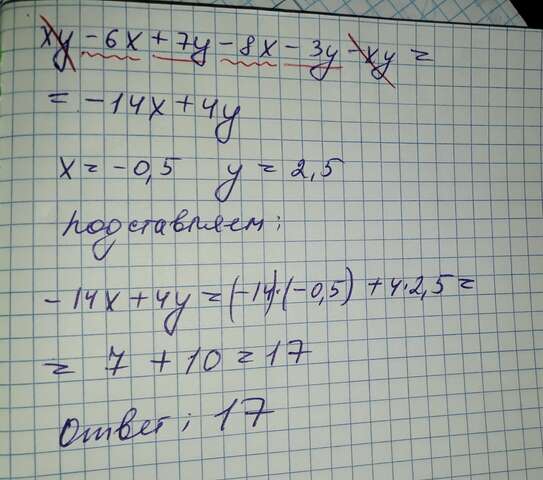 xy - 6x + 7y - 8x - 3y - xy =
= -14x + 4y
x = -0,5 y = 2,5
подставляем:
-14x + 4y = (-14)·(-0,5) + 4·2,5 =
= 7 + 10 = 17
Ответ: 17